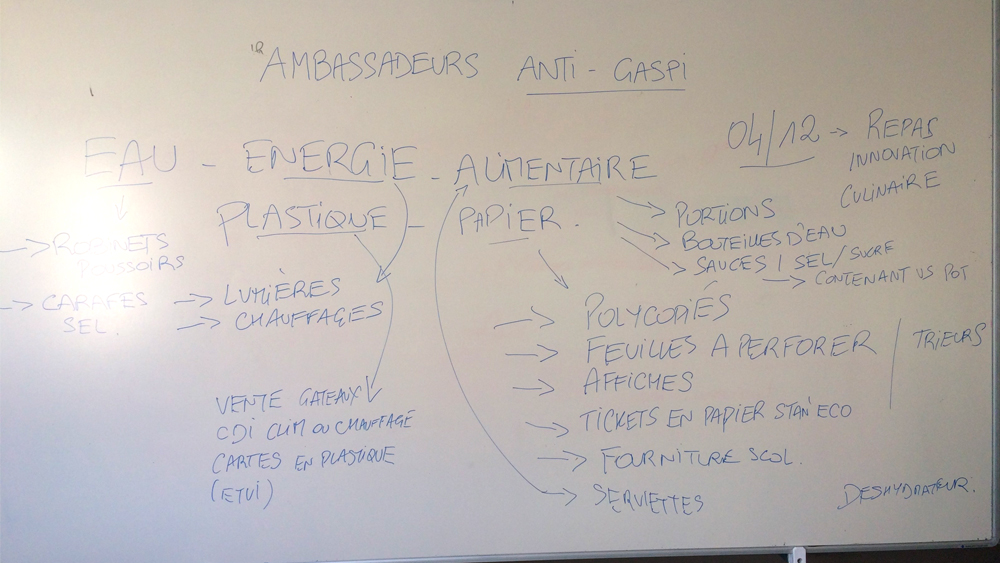 AMBASSADEURS ANTI - GASPI
04/12 → REPAS
INNOVATION
CULINAIRE
EAU - ENERGIE - ALIMENTAIRE
PLASTIQUE - PAPIER.
→ PORTIONS
→ BOUTEILLES D'EAU
→ SAUCES / SEL / SUCRE
→ CONTENANT VS POT
→ ROBINETS
POUSSOIRS
→ CARAFES
SEL.
→ LUMIÈRES
→ CHAUFFAGES
VENTE GATEAUX
CDI CLIM OU CHAUFFAGE
CARTES EN PLASTIQUE
(ETUI)
→ POLYCOPIÉS
→ FEUILLES A PERFORER
→ AFFICHES
TRIEURS
→ TICKETS EN PAPIER STAN'ECO
→ FOURNITURE SCOL.
→ SERVIETTES
DESHYDRATEUR.